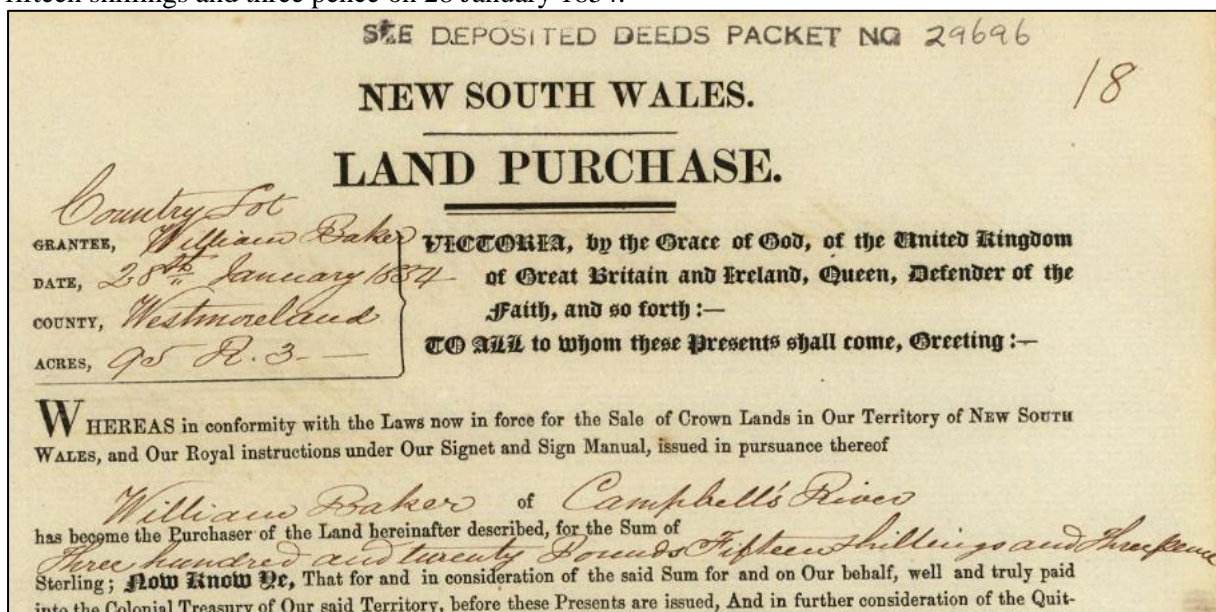 fifteen shillings and three pence on 28 January 1854.
SEE DEPOSITED DEEDS PACKET NO 29696
18
NEW SOUTH WALES.
LAND PURCHASE.
Country Lot
GRANTEE, William Baker
DATE, 28th January 1854
COUNTY, Westmoreland
ACRES, 95 R. 3.—
VICTORIA, by the Grace of God, of the United Kingdom
of Great Britain and Ireland, Queen, Defender of the
Faith, and so forth :—
TO ALL to whom these Presents shall come, Greeting :—
WHEREAS in conformity with the Laws now in force for the Sale of Crown Lands in Our Territory of NEW SOUTH
WALES, and Our Royal instructions under Our Signet and Sign Manual, issued in pursuance thereof
William Baker of Campbell's River
has become the Purchaser of the Land hereinafter described, for the Sum of
Three hundred and twenty Pounds Fifteen shillings and Three pence
Sterling; Now Know Ye, That for and in consideration of the said Sum for and on Our behalf, well and truly paid
into the Colonial Treasury of Our said Territory, before these Presents are issued, And in further consideration of the Quit-